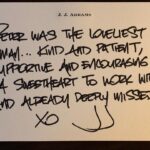 J. J. ABRAMS
PETER WAS THE LOVELIEST
MAN... KIND AND PATIENT,
SUPPORTIVE AND ENCOURAGING
A SWEETHEART TO WORK WITH
AND ALREADY DEEPLY MISSED
XO JJ